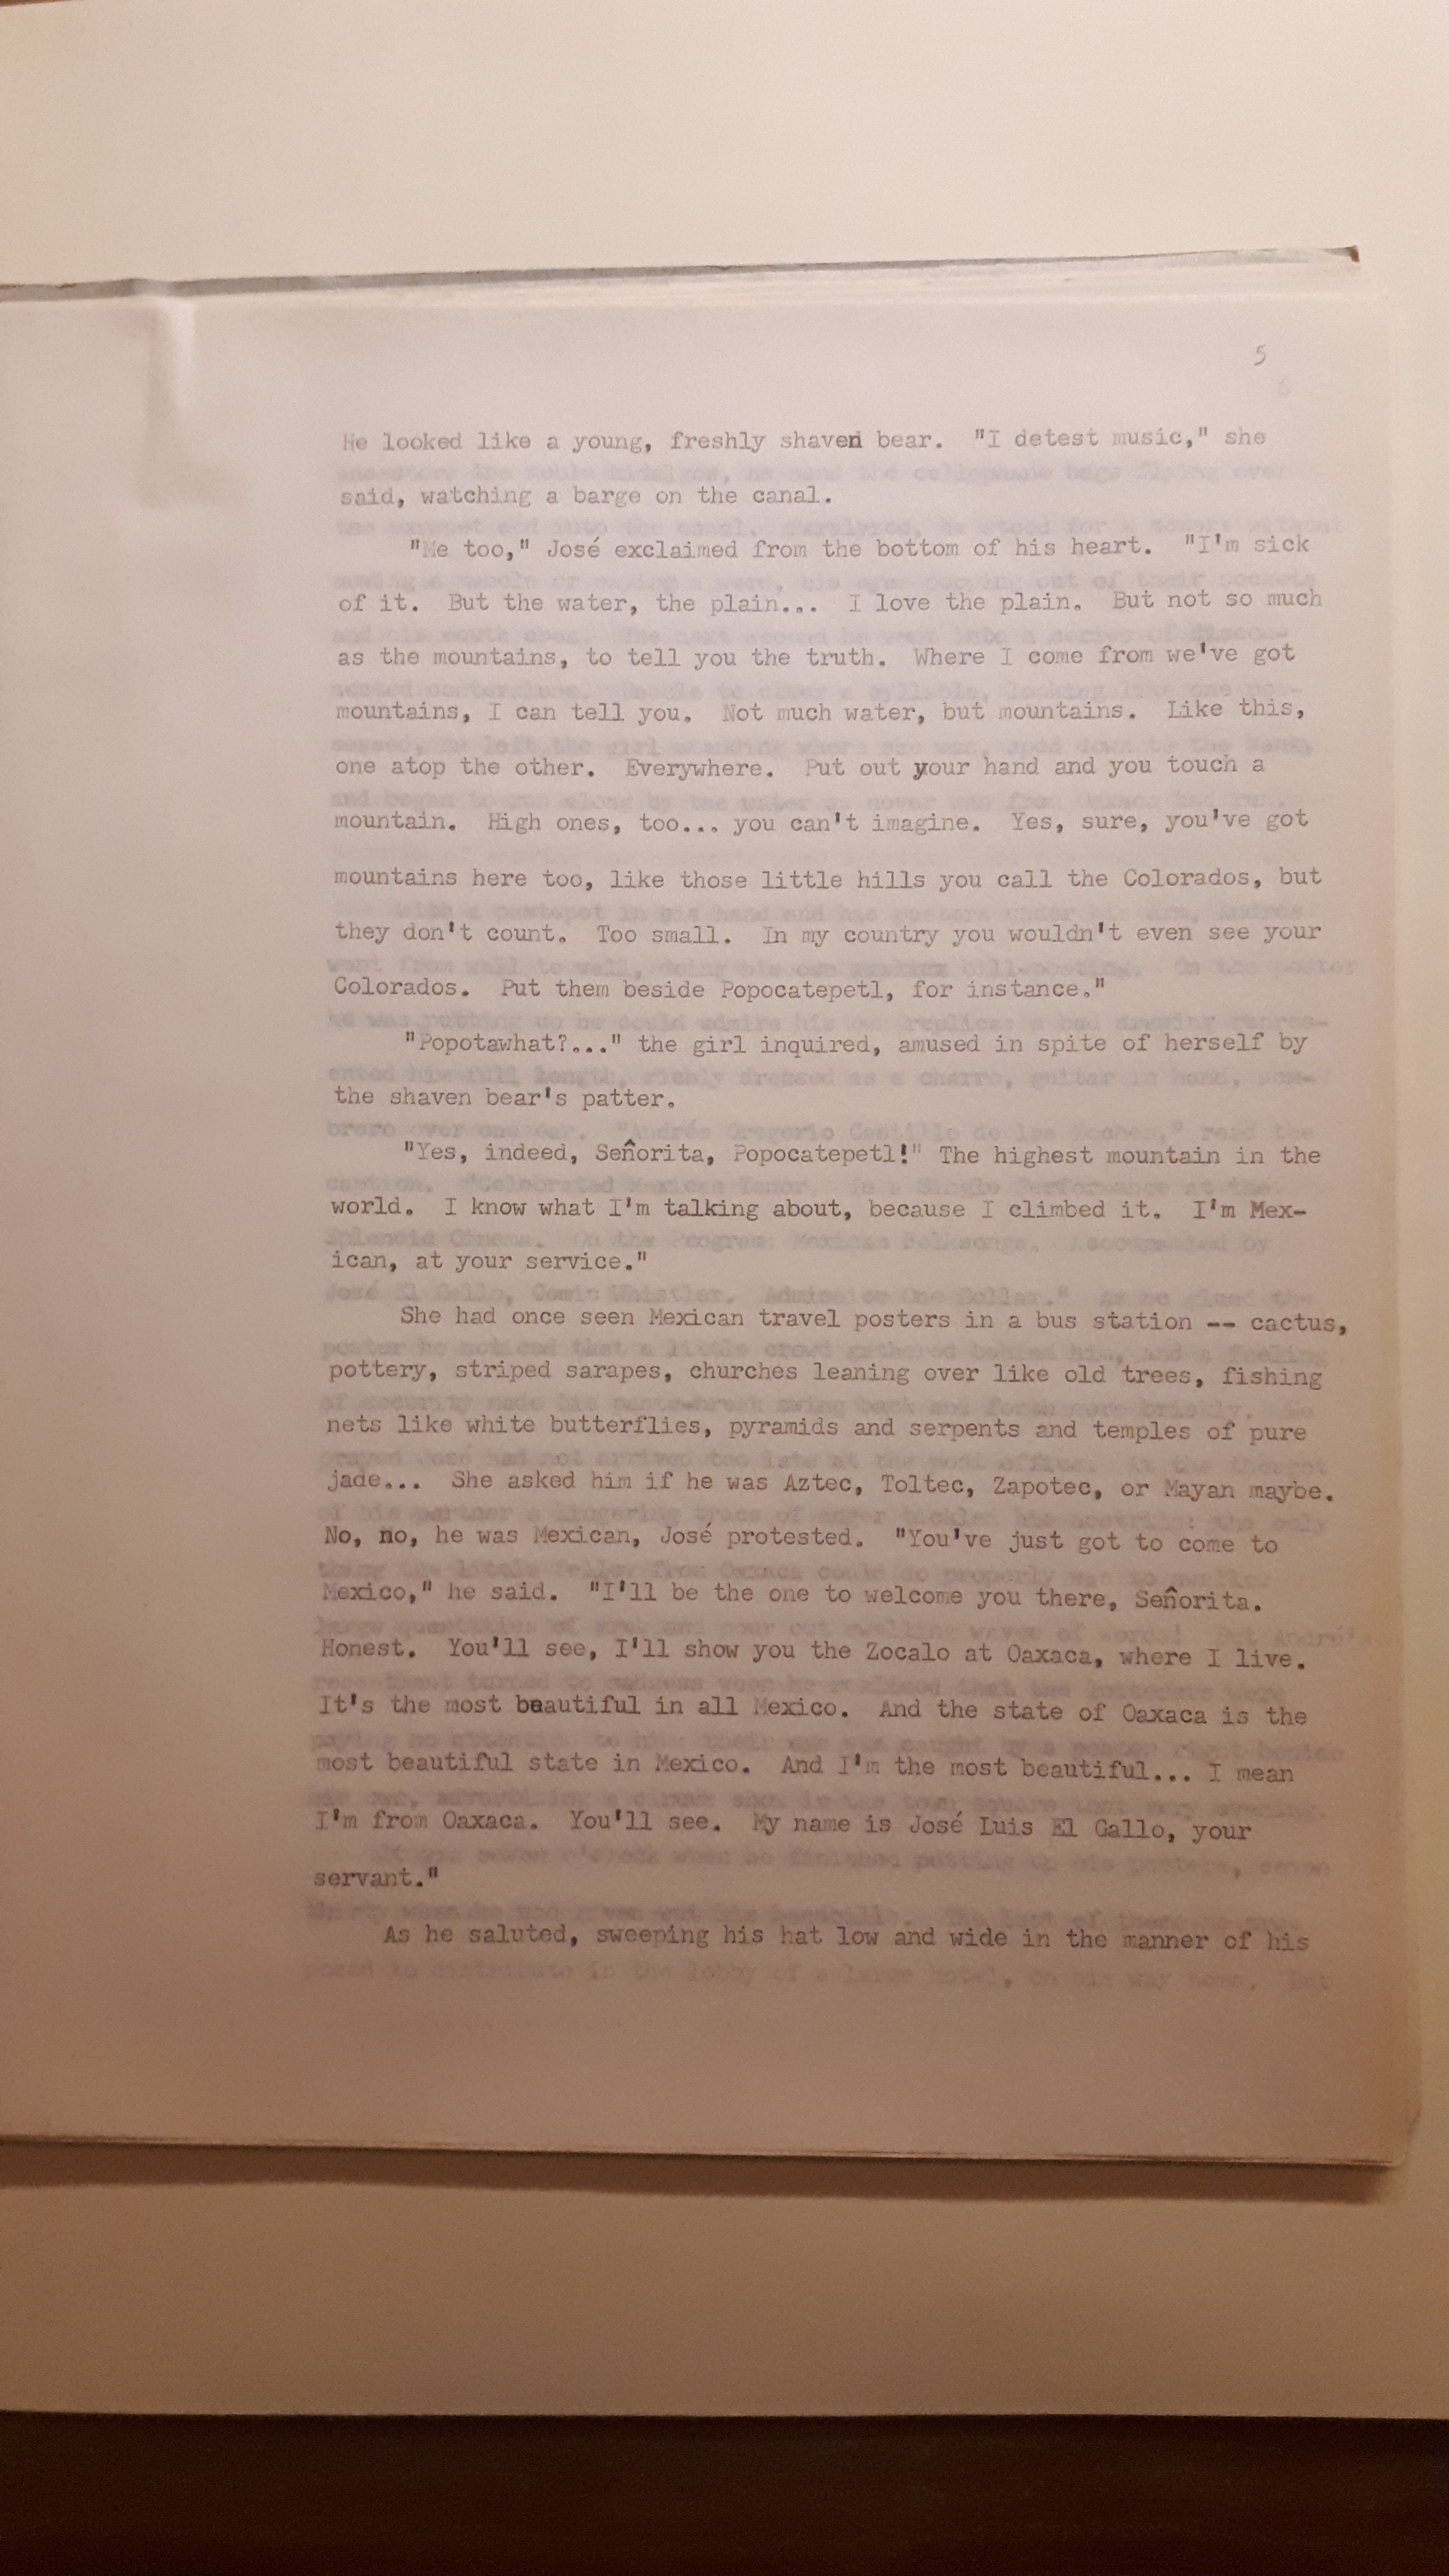 5
He looked like a young, freshly shaven bear.  "I detest music," she
said, watching a barge on the canal.
"Me too," José exclaimed from the bottom of his heart.  "I'm sick
of it.  But the water, the plain...  I love the plain.  But not so much
as the mountains, to tell you the truth.  Where I come from we've got
mountains, I can tell you.  Not much water, but mountains.  Like this,
one atop the other.  Everywhere.  Put out your hand and you touch a
mountain.  High ones, too... you can't imagine.  Yes, sure, you've got
mountains here too, like those little hills you call the Colorados, but
they don't count.  Too small.  In my country you wouldn't even see your
Colorados.  Put them beside Popocatepetl, for instance."
"Popotawhat?..." the girl inquired, amused in spite of herself by
the shaven bear's patter.
"Yes, indeed, Señorita, Popocatepetl!" The highest mountain in the
world.  I know what I'm talking about, because I climbed it.  I'm Mex-
ican, at your service."
She had once seen Mexican travel posters in a bus station -- cactus,
pottery, striped sarapes, churches leaning over like old trees, fishing
nets like white butterflies, pyramids and serpents and temples of pure
jade...  She asked him if he was Aztec, Toltec, Zapotec, or Mayan maybe.
No, no, he was Mexican, José protested.  "You've just got to come to
Mexico," he said.  "I'll be the one to welcome you there, Señorita.
Honest.  You'll see, I'll show you the Zocalo at Oaxaca, where I live.
It's the most beautiful in all Mexico.  And the state of Oaxaca is the
most beautiful state in Mexico.  And I'm the most beautiful... I mean
I'm from Oaxaca.  You'll see.  My name is José Luis El Gallo, your
servant."
As he saluted, sweeping his hat low and wide in the manner of his